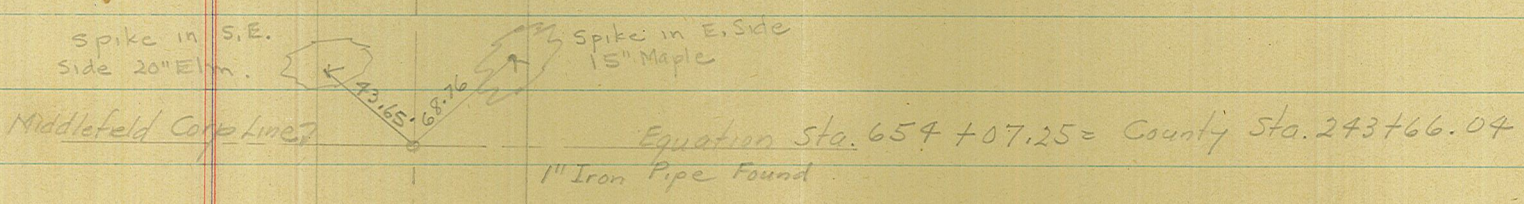 Spike in S.E.
Side 20" Elm.
Spike in E. Side
15" Maple
43.65'
68.76
Middlefield Corp Line?
Equation Sta. 654+07.25 = County Sta. 243+66.04
1" Iron Pipe Found